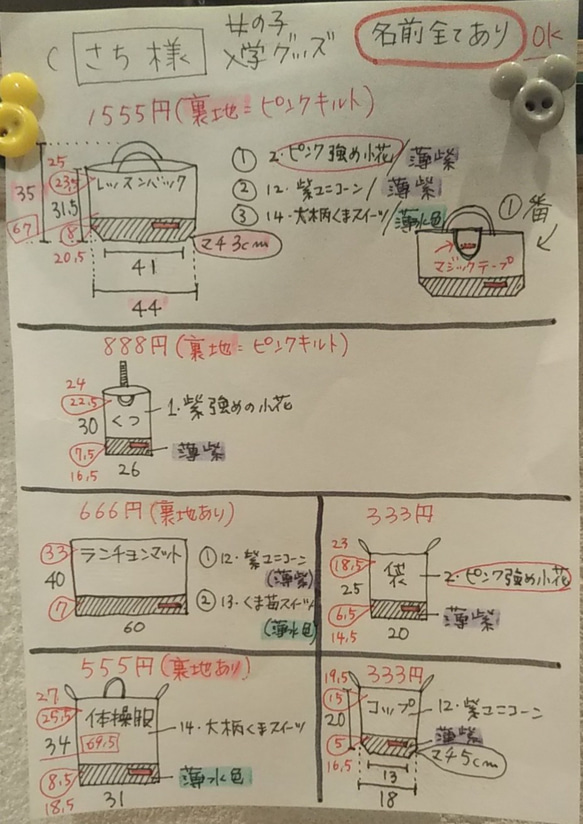 さち様
女の子
入学グッズ
名前全てあり OK
1555円(裏地=ピンクキルト)
35
67
25
23.5
31.5
8
20.5
レッスンバック
マチ3cm
41
44
① 2.ピンク強め小花/薄紫
② 12.紫ユニコーン/薄紫
③ 14.大柄くまスイーツ/薄水色
①番
マジックテープ
888円(裏地=ピンクキルト)
24
22.5
30
7.5
16.5
くつ
26
1.紫強めの小花
薄紫
666円(裏地あり)
33
40
7
ランチョンマット
60
① 12.紫ユニコーン
(薄紫)
② 13.くま苺スイーツ
(薄水色)
333円
23
18.5
25
6.5
14.5
袋
20
2.ピンク強め小花
薄紫
555円(裏地あり)
27
25.5
34
8.5
18.5
体操服
69.5
31
14.大柄くまスイーツ
薄水色
333円
19.5
15
20
5
16.5
コップ
12.紫ユニコーン
薄紫
マチ5cm
13
18